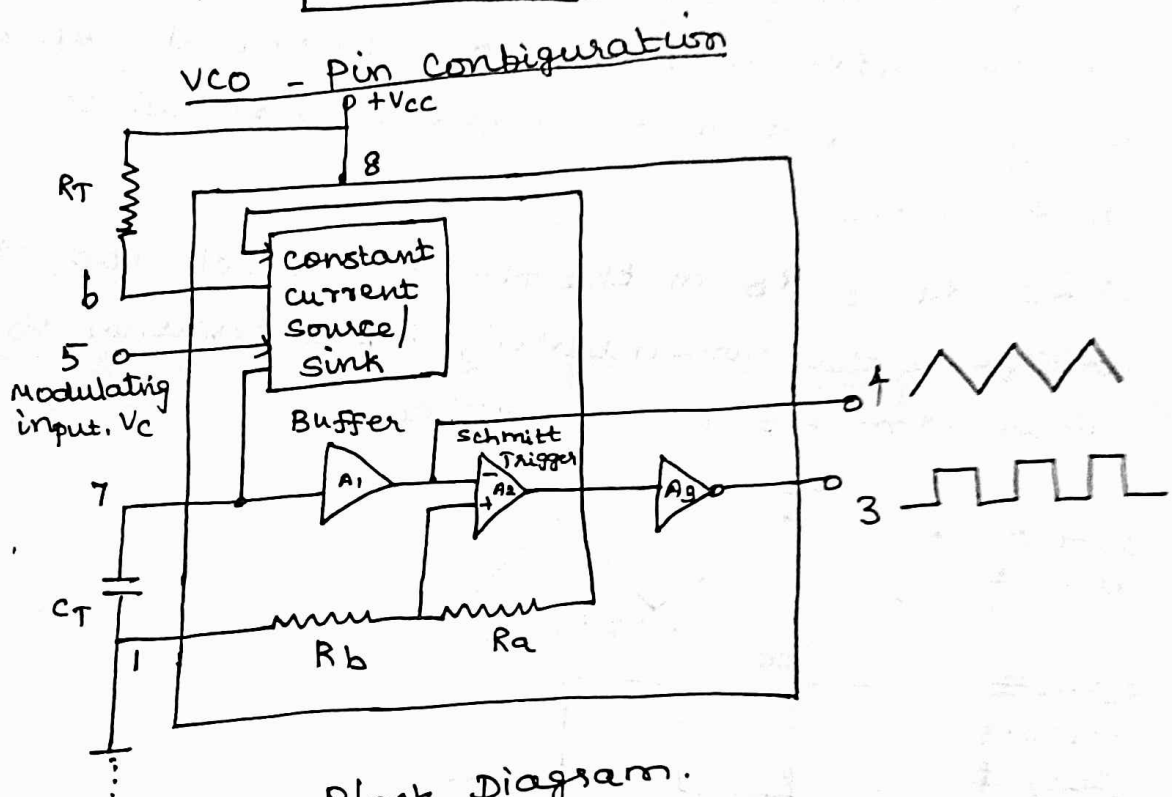 VCO - Pin Conbiguration
+Vcc
RT
8
6
constant
current
source/
sink
5
Modulating
input, Vc
Buffer
Schmitt
Trigger
4
7
A1
-
A2
+
A3
3
CT
1
Rb
Ra
Block Diagram.